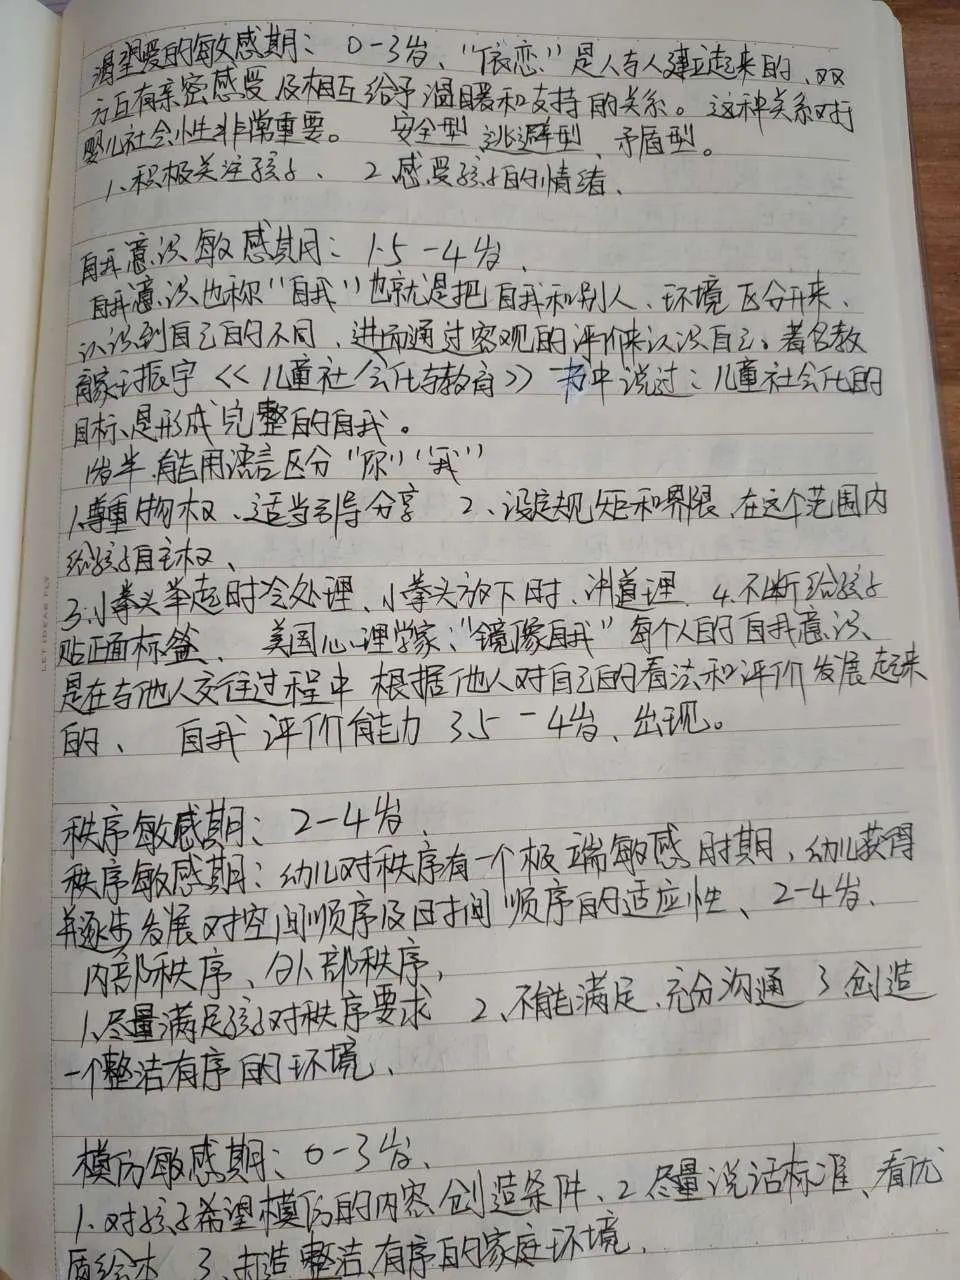 渴望爱的敏感期：0-3岁、“依恋”是人与人建立起来的、双
方互有亲密感受及相互给予温暖和支持的关系。这种关系对于
婴儿社会性非常重要。 安全型、逃避型、矛盾型。
1、积极关注孩子、 2、感受孩子的情绪、
自我意识敏感期：1.5-4岁、
自我意识、也称“自我”也就是把自我和别人、环境区分开来、
认识到自己的不同、进而通过客观的评价来认识自己。著名教
育家刘振宇《儿童社会化与教育》书中说过：儿童社会化的
目标、是形成完整的自我。
1岁半、能用语言区分“你”“我”
1、尊重物权、适当引导分享 2、设定规矩和界限、在这个范围内
给孩子自主权、
3、小拳头举起时冷处理、小拳头放下时、讲道理 4.不断给孩子
贴正面标签、 美国心理学家：“镜像自我”每个人的自我意识、
是在与他人交往过程中根据他人对自己的看法和评价发展起来
的、 自我评价能力 3.5-4岁、出现。
秩序敏感期：2-4岁、
秩序敏感期：幼儿对秩序有一个极端敏感时期，幼儿获得
并逐步发展对空间顺序及时间顺序的适应性、2-4岁、
内部秩序、外部秩序，
1、尽量满足孩子对秩序要求 2、不能满足、充分沟通 3 创造
一个整洁有序的环境、
模仿敏感期：0-3岁、
1、对孩子希望模仿的内容创造条件、2 尽量说话标准、看优
质绘本 3、打造整洁、有序的家庭环境、
LETIDEAS FLY